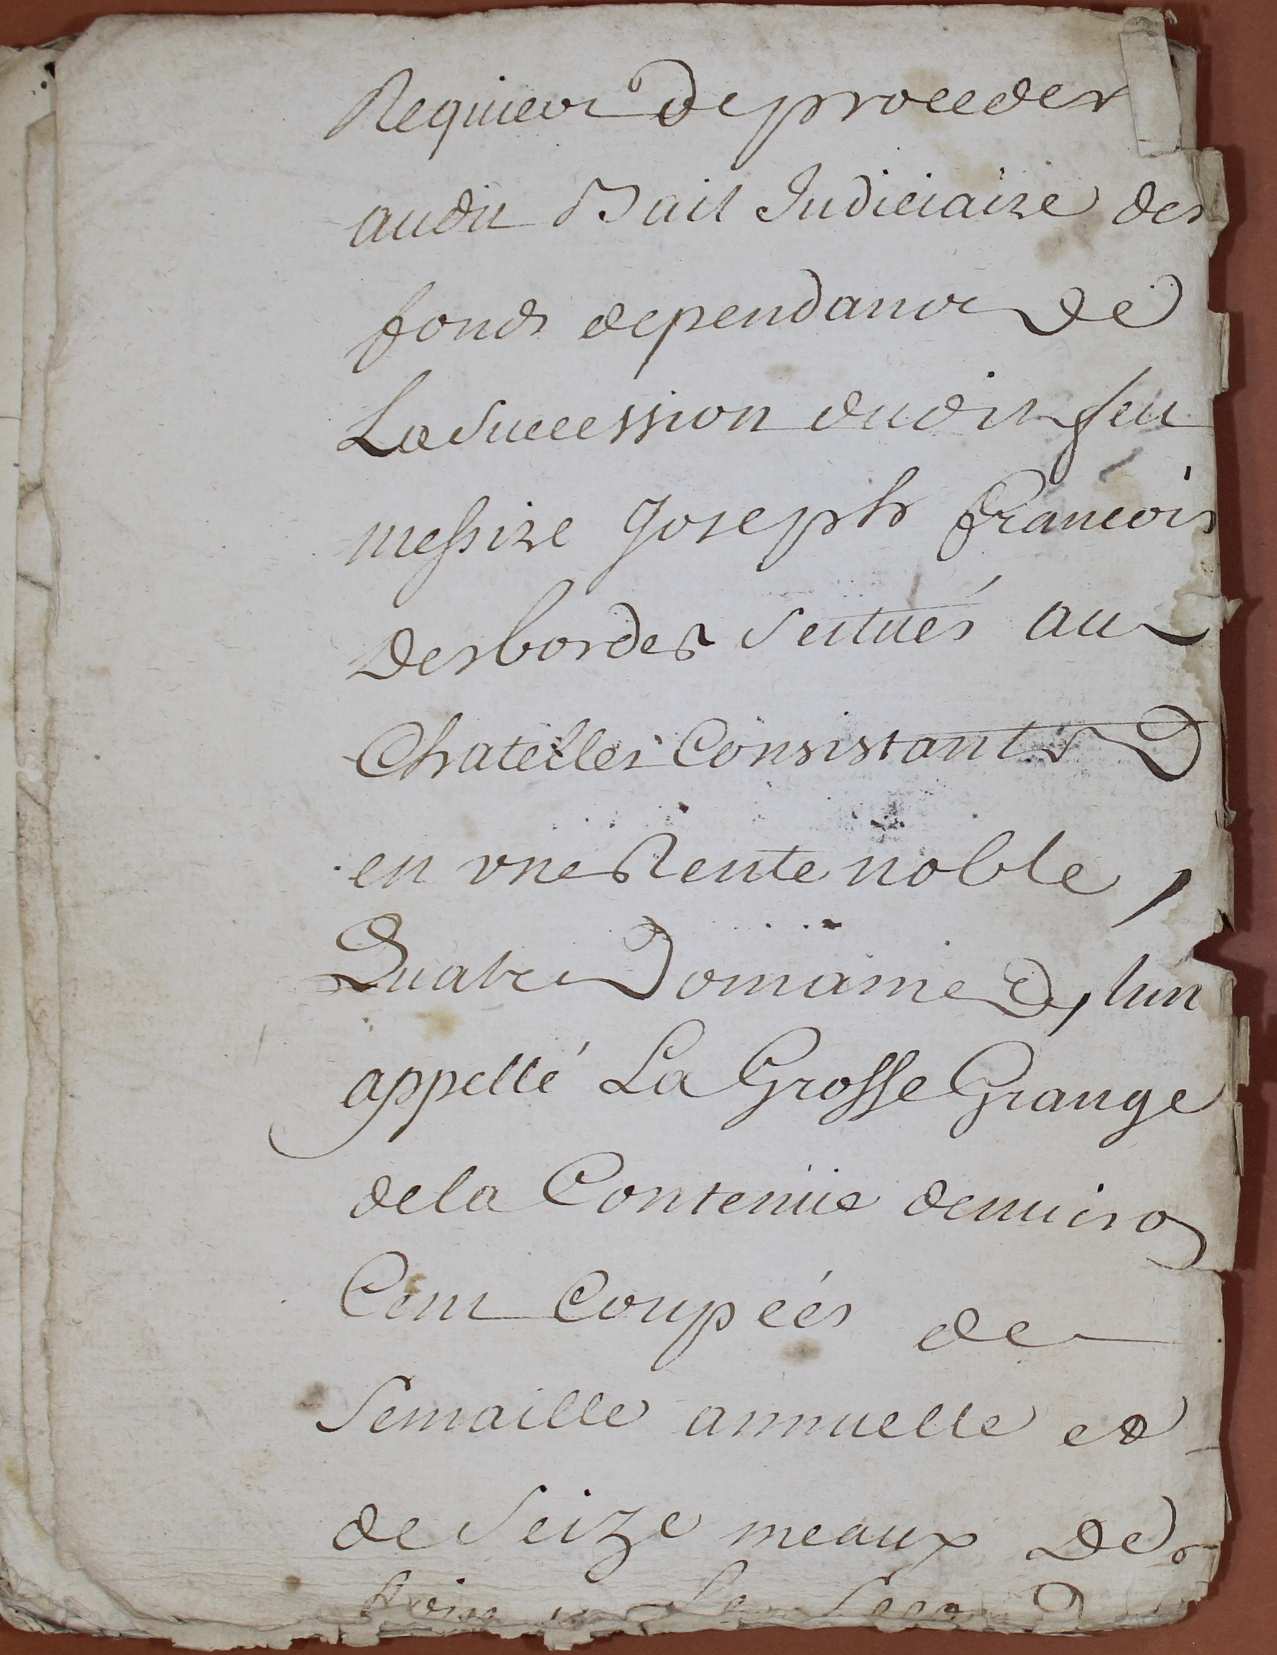 Requieir de proceder
audit Bail Judiciaire des
fonds dependant de
La Succession dudit feu
messire Joseph francois
Desbordes Scitués au
Chatelles Consistants
en une Rente noble,
Quatre Domaines, lun
appellé La Grosse Grange
de la Contenüe denviron
Cent Coupéés de
Semaille annuelle et
de Seize meaux de